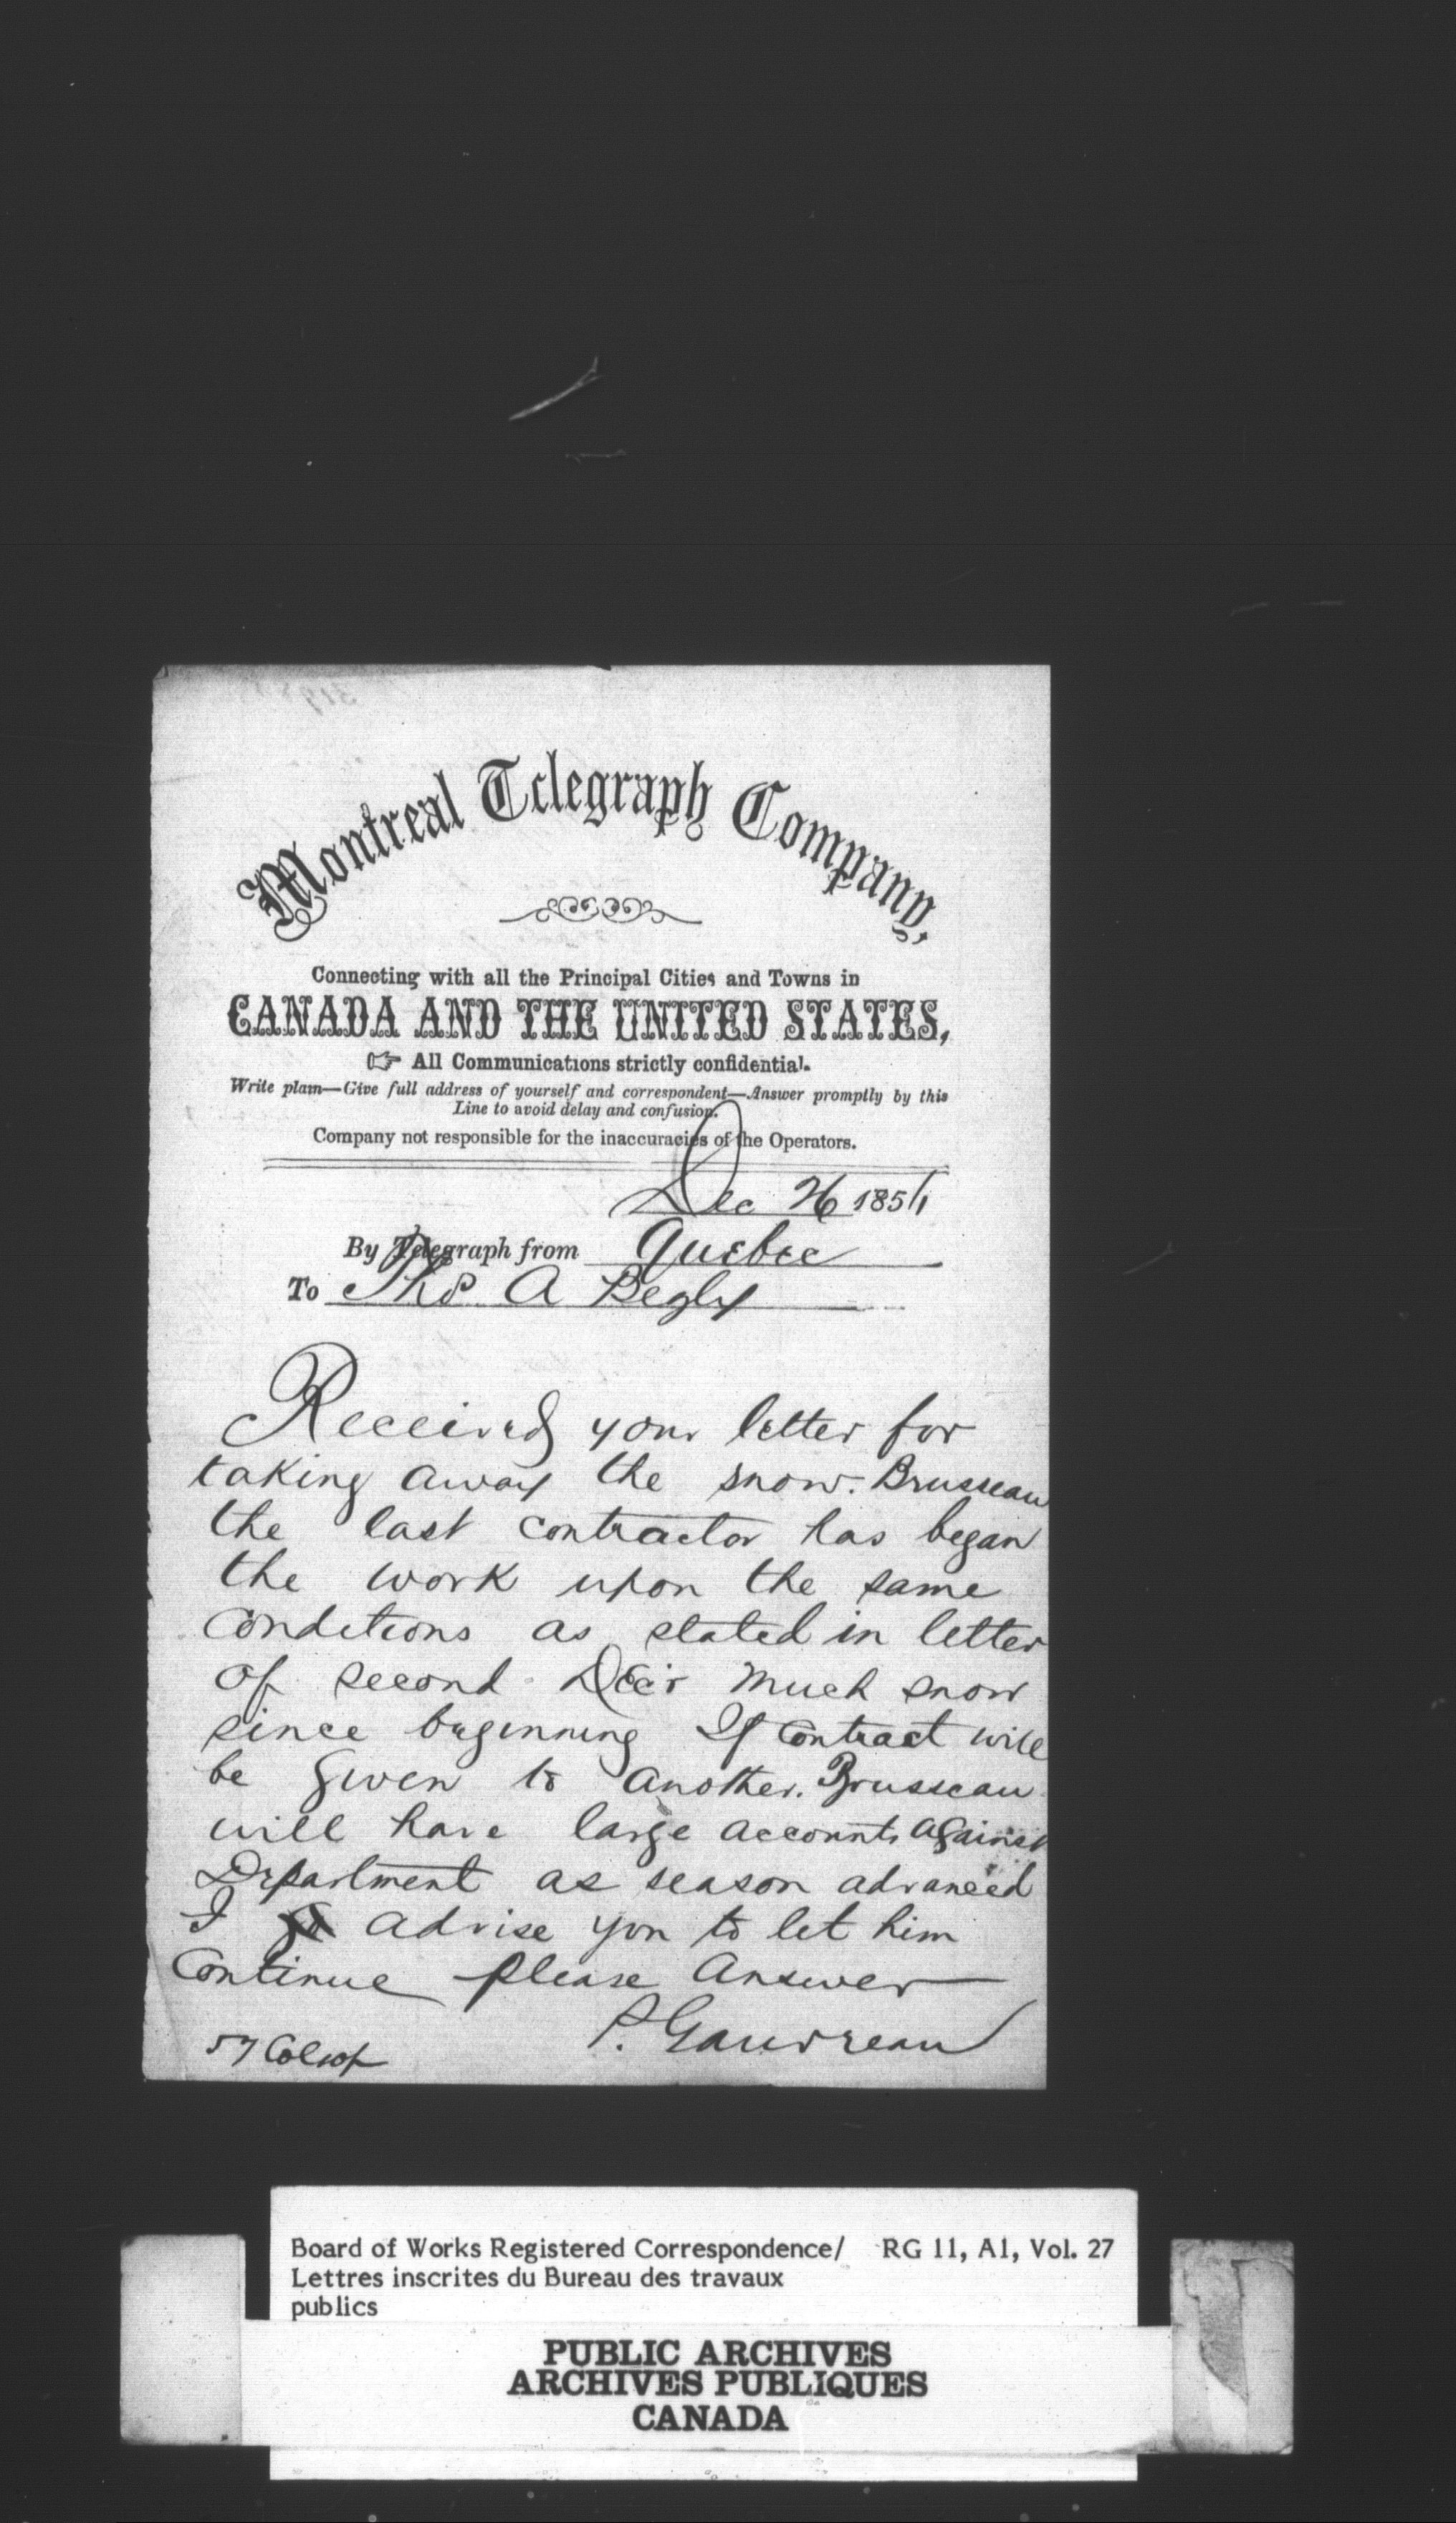 Montreal Telegraph Company,
Connecting with all the Principal Cities and Towns in
CANADA AND THE UNITED STATES,
☞ All Communications strictly confidential.
Write plain—Give full address of yourself and correspondent—Answer promptly by this
Line to avoid delay and confusion.
Company not responsible for the inaccuracies of the Operators.
Dec 26 1854
By Telegraph from Quebec
To Thos A Begly
Received your letter for
taking away the snow. Brusseau
the last contractor has began
the work upon the same
conditions as stated in letter
of second Decr much snow
since beginning If contract will
be given to another. Brusseau
will have large accounts against
Department as season advanced
I advise you to let him
Continue please Answer
P. Gauvreau
57 Col
Board of Works Registered Correspondence/ RG 11, A1, Vol. 27
Lettres inscrites du Bureau des travaux
publics
PUBLIC ARCHIVES
ARCHIVES PUBLIQUES
CANADA